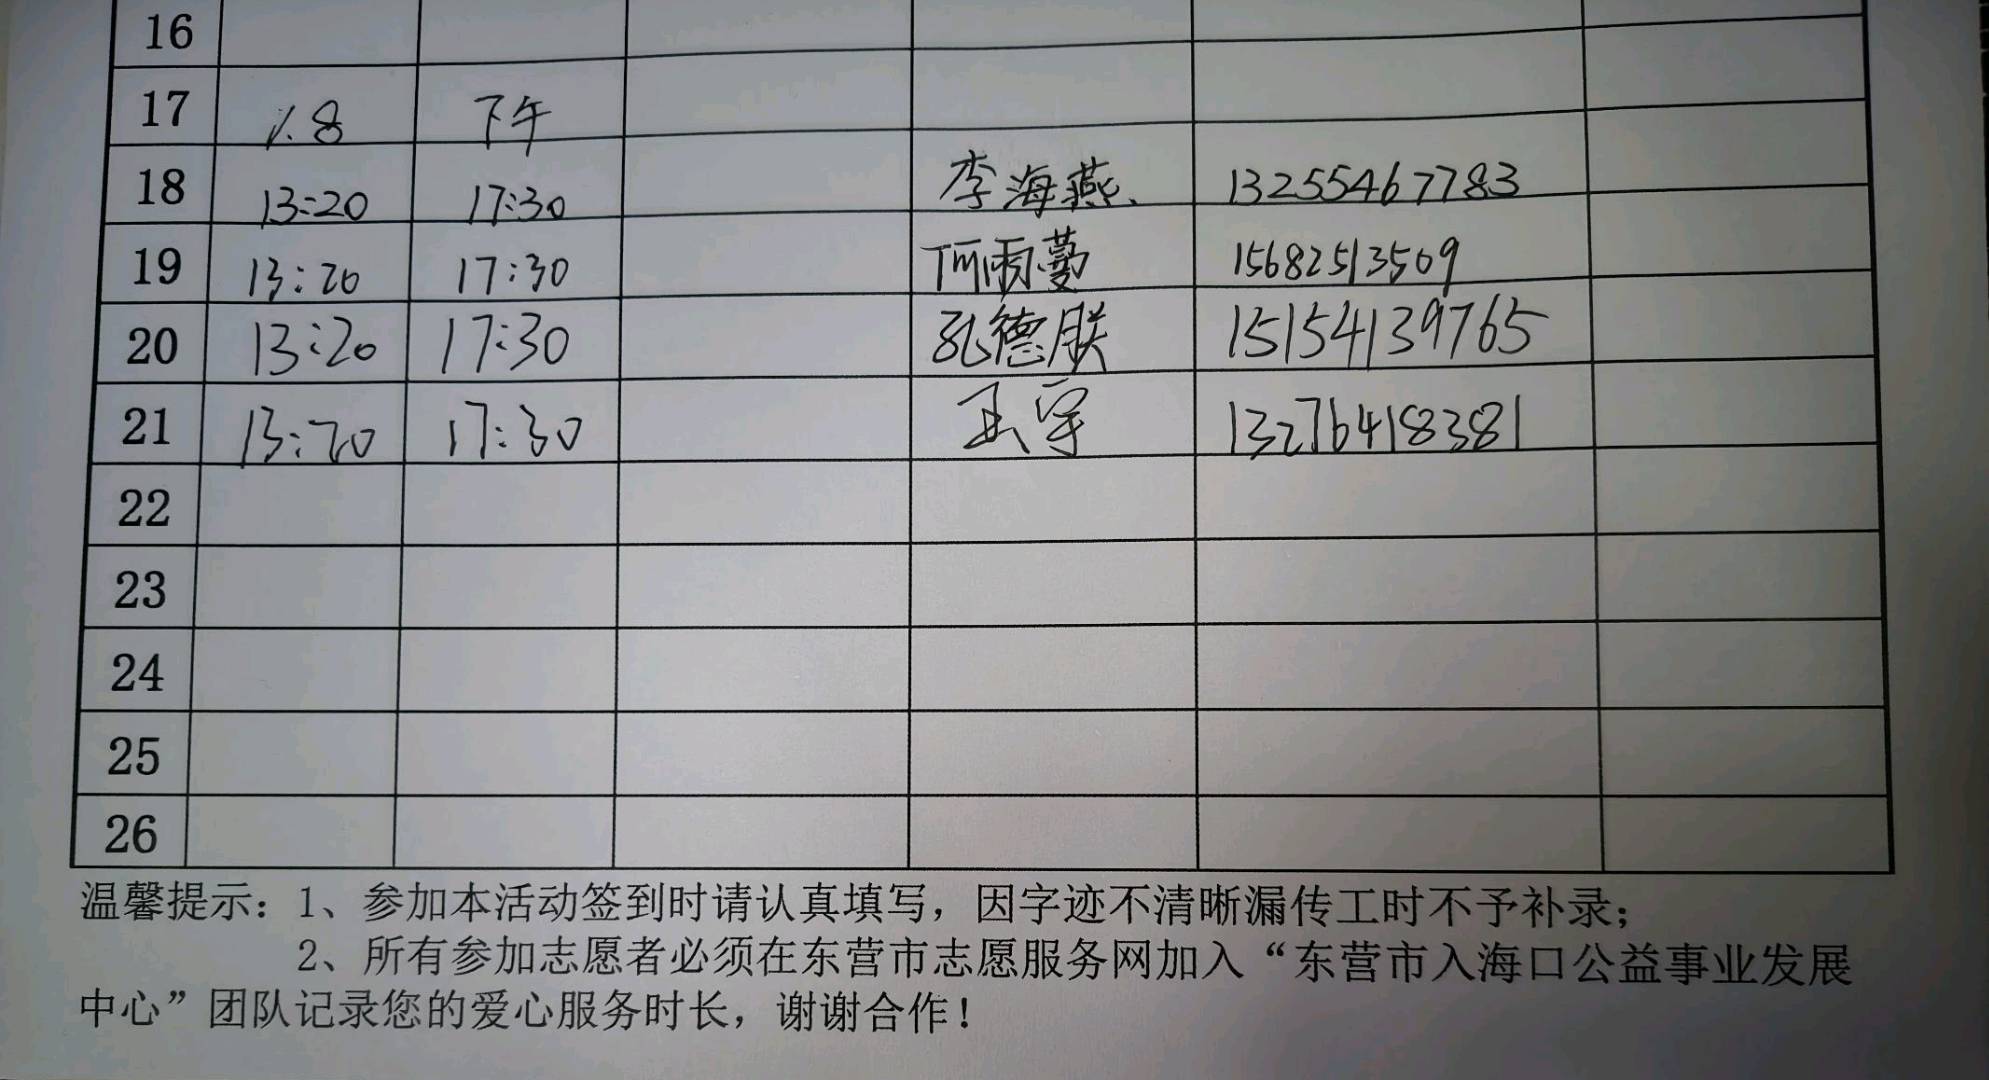 16
17 1.8 下午
18 13:20 17:30 李海燕 13255467783
19 13:20 17:30 15682513509
20 13:20 17:30 孔德朕 15154139765
21 13:20 17:30 王宇 13276418381
22
23
24
25
26
温馨提示：1、参加本活动签到时请认真填写，因字迹不清晰漏传工时不予补录；
2、所有参加志愿者必须在东营市志愿服务网加入“东营市入海口公益事业发展
中心”团队记录您的爱心服务时长，谢谢合作！